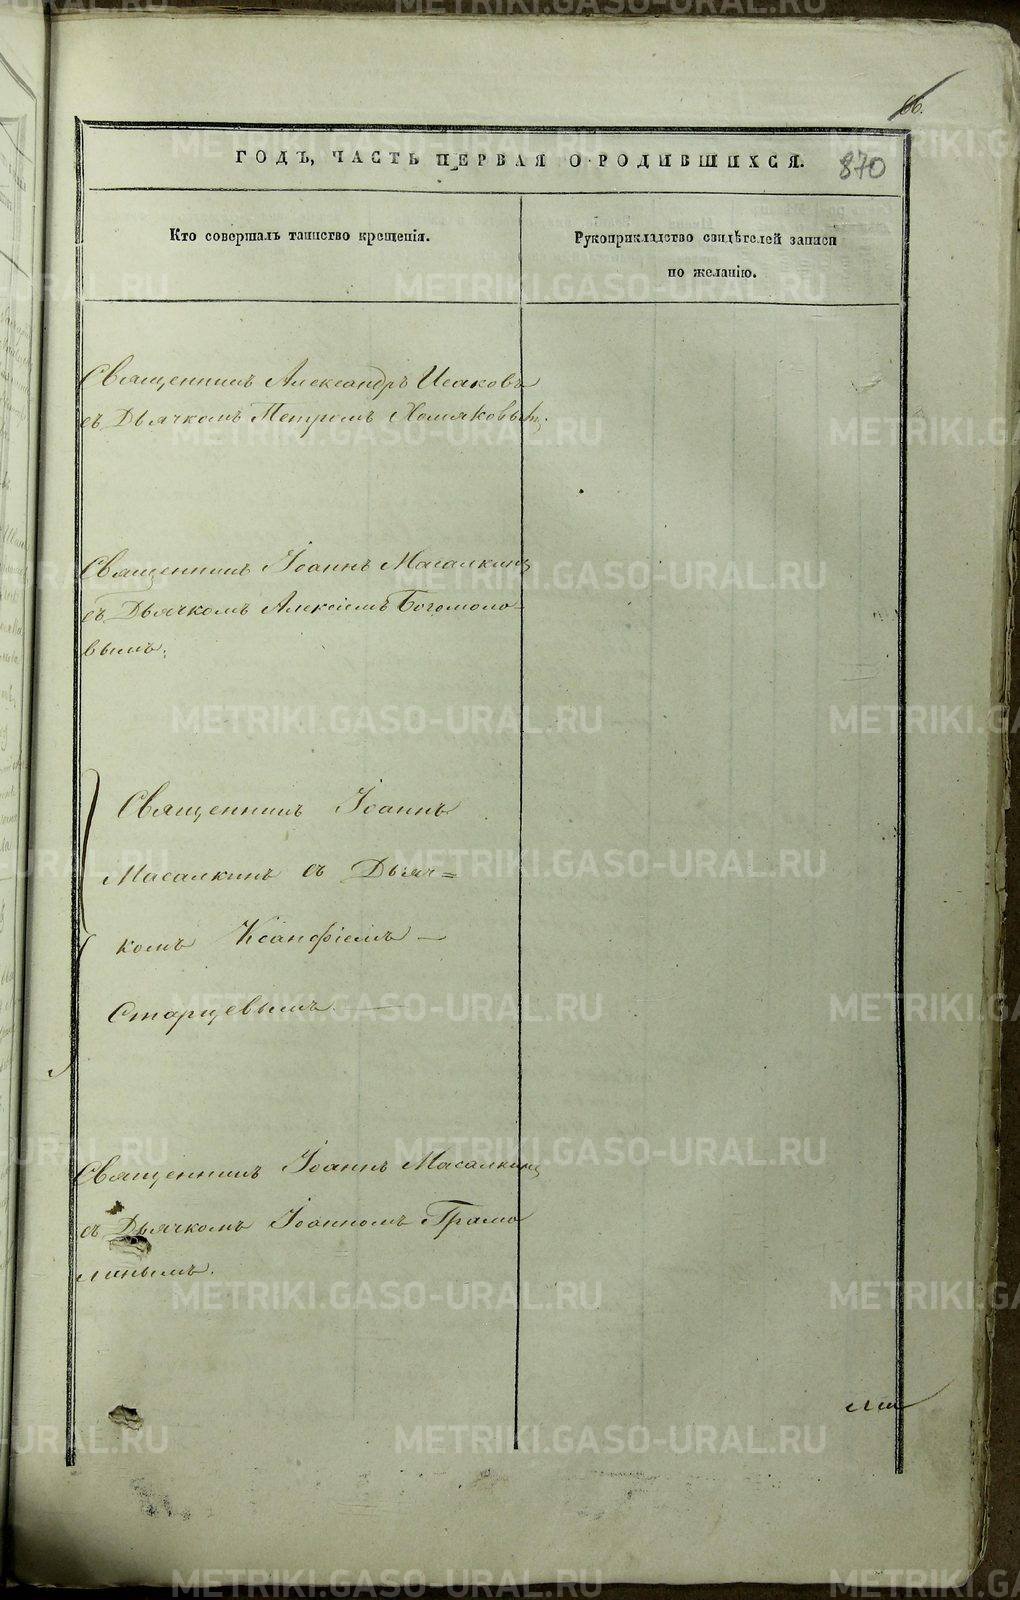 66.
ГОДЪ, ЧАСТЬ ПЕРВАЯ О РОДИВШИХСЯ.
870
Кто совершалъ таинство крещенія.
Рукоприкладство свидѣтелей записи
по желанію.
Священникъ Александръ Исаковъ
съ Дьячкомъ Петромъ Хомяковымъ.
Священникъ Іоаннъ Масалкинъ
съ Дьячкомъ Алексіемъ Богомоло-
вымъ.
Священникъ Іоаннъ
Масалкинъ съ Дьяч=
комъ Ксанфіемъ —
Старцевымъ. —
Священникъ Іоаннъ Масалкинъ
съ Дьячкомъ Іоанномъ
METRIKI.GASO-URAL.RU